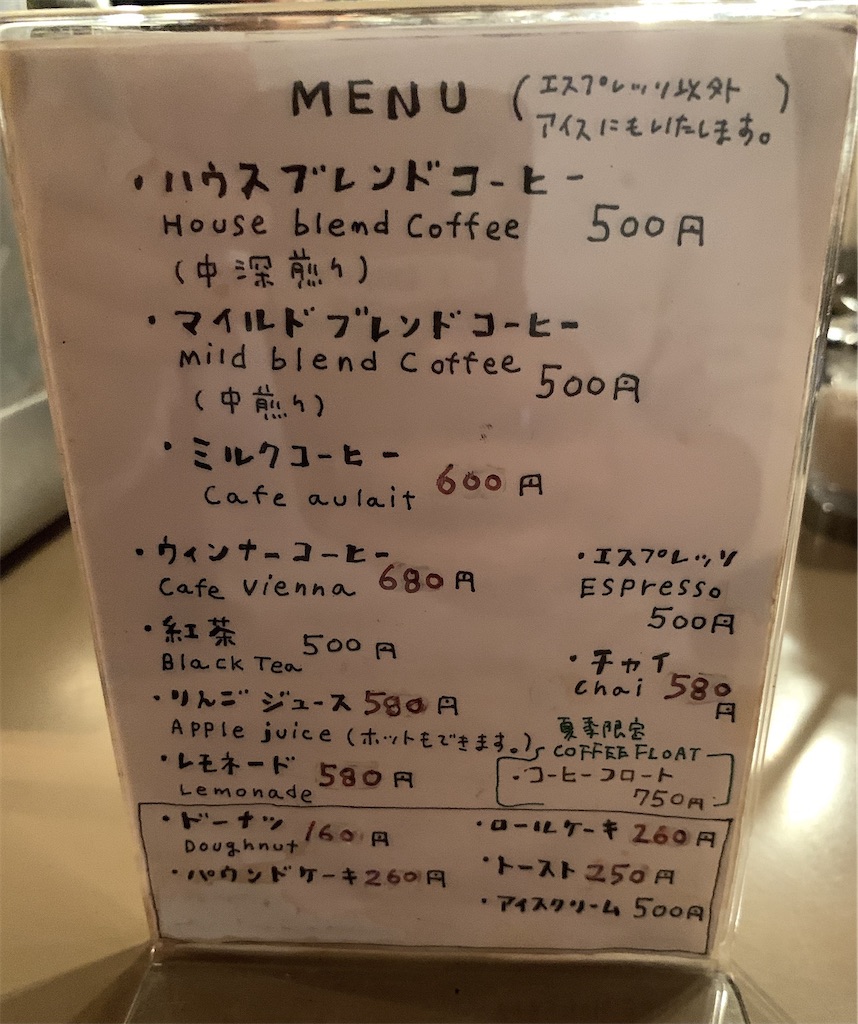 MENU (エスプレッソ以外
アイスにもいたします。)
・ハウスブレンドコーヒー
House blend Coffee 500円
(中深煎り)
・マイルドブレンドコーヒー
Mild blend Coffee 500円
(中煎り)
・ミルクコーヒー
Cafe aulait 600円
・ウィンナーコーヒー
Cafe Vienna 680円
・エスプレッソ
ESPresso
500円
・紅茶 500円
Black Tea
・チャイ
Chai 580円
・りんごジュース 580円
Apple juice (ホットもできます。)
・レモネード 580円
Lemonade
夏季限定
COFFEE FLOAT
・コーヒーフロート
750円
・ドーナツ 160円
Doughnut
・パウンドケーキ 260円
・ロールケーキ 260円
・トースト 250円
・アイスクリーム 500円